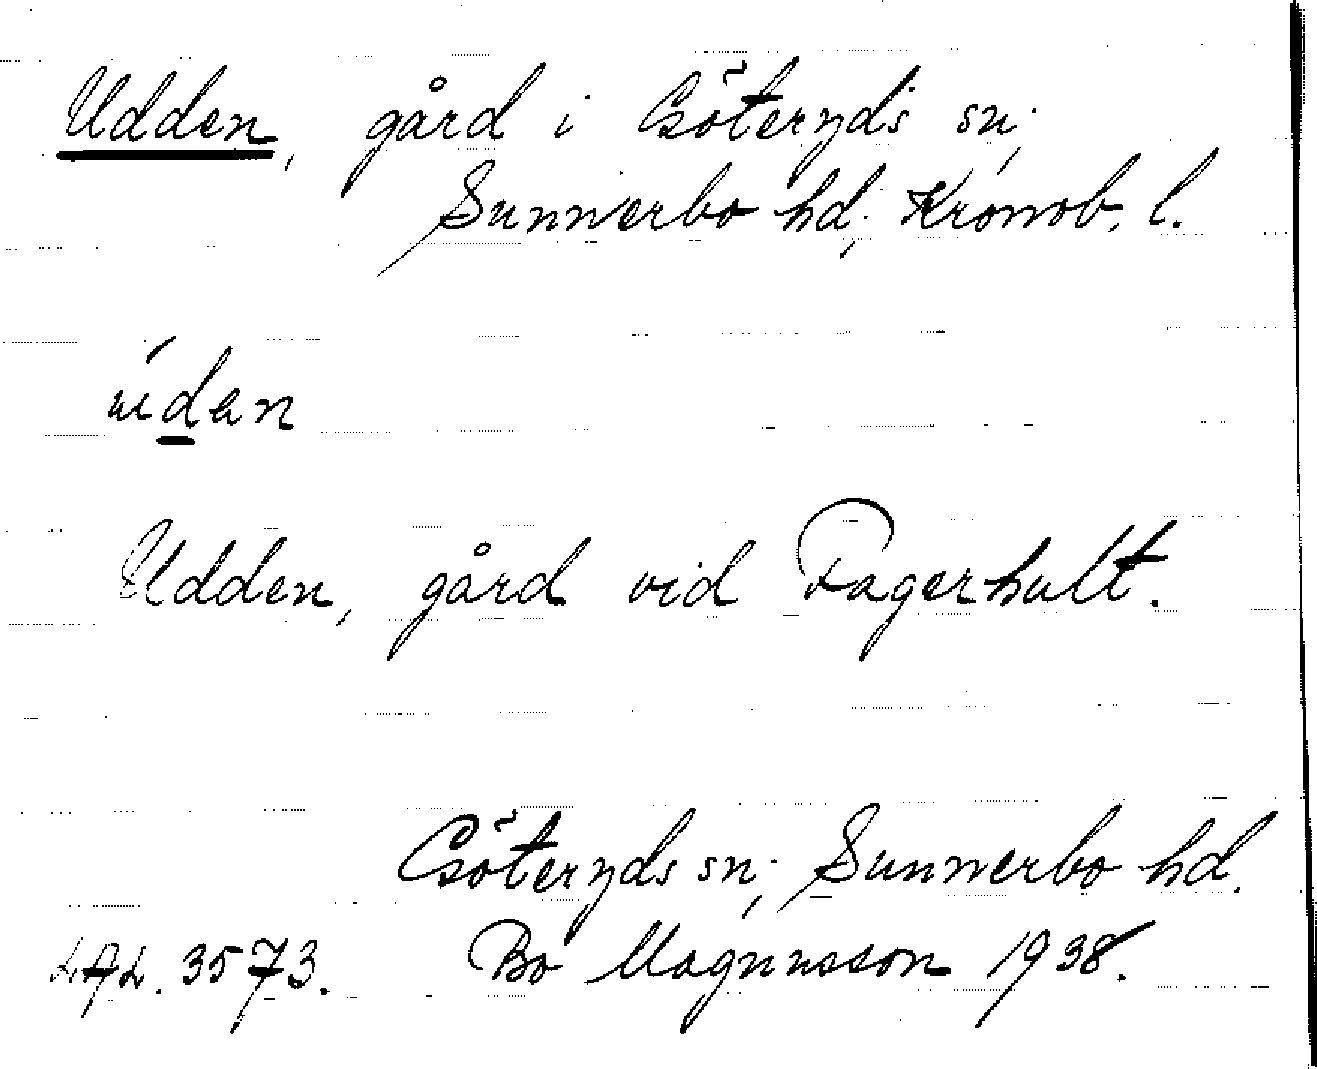 Udden, gård i Göteryds sn.,
Sunnerbo hd., Kronob. l.
údan
Udden, gård vid Fagerhult.
Göteryds sn., Sunnerbo hd.
LAL. 3573. Bo Magnusson 1938.